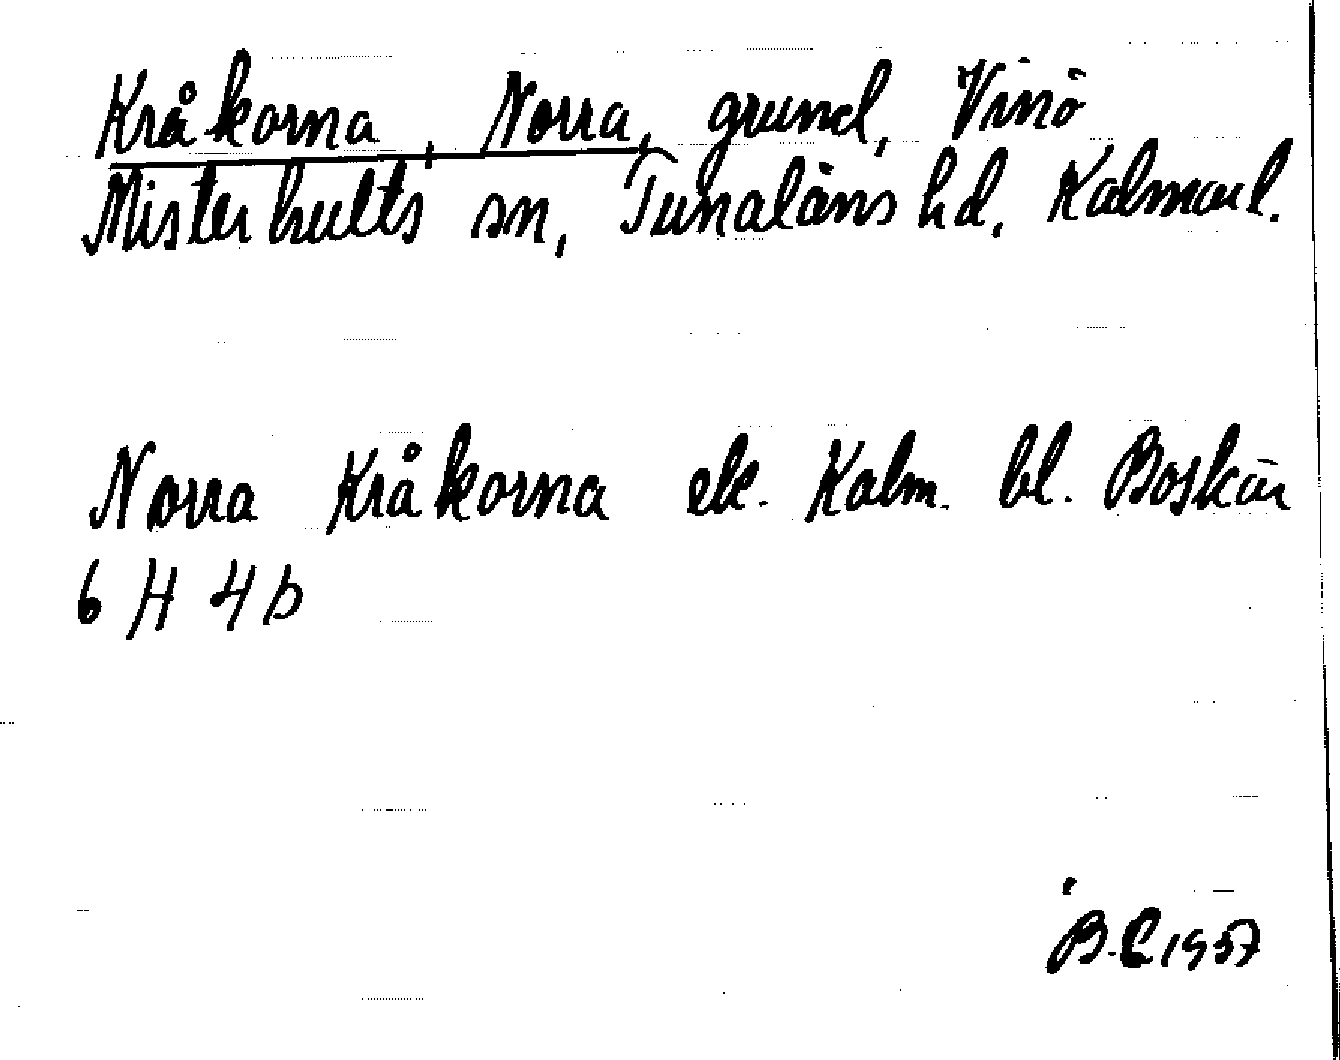 Kråkorna, Norra, grund, Vinö
Misterhults sn, Tunaläns hd. Kalmar l.
Norra Kråkorna ek. Kalm. bl. Boskär
6 H 4 b
B.E 1957